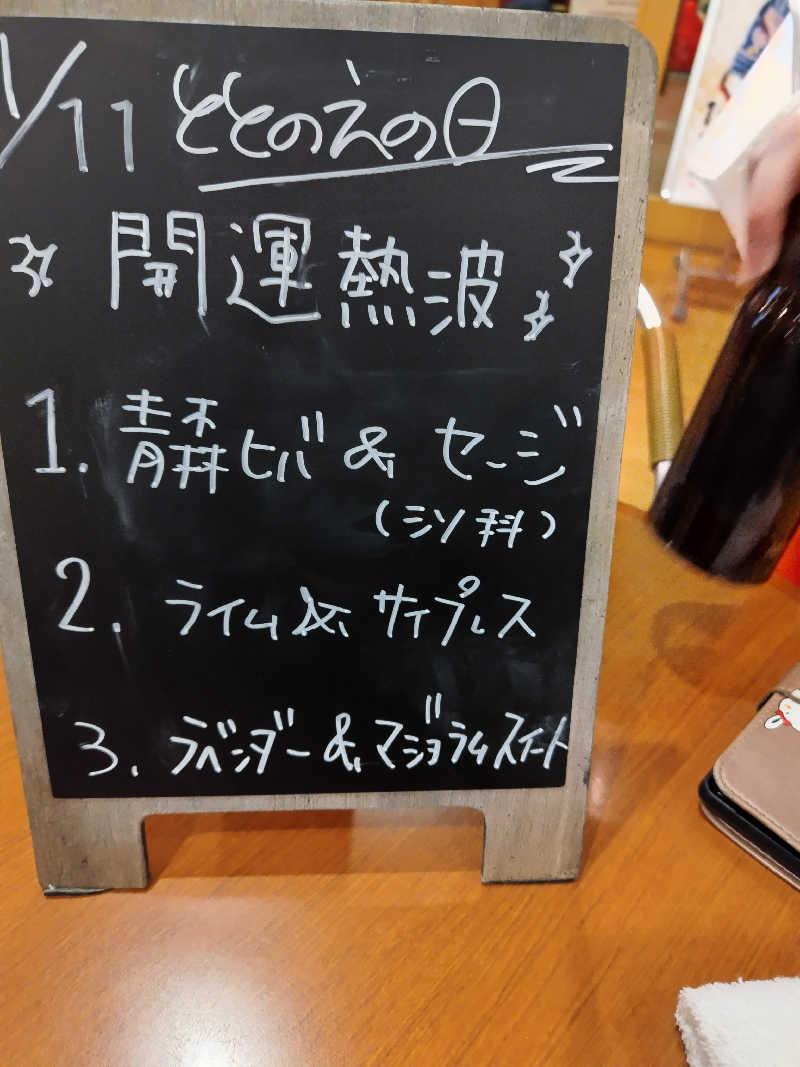 1/11 ととのえの日
開運熱波
1. 青森ヒバ & セージ
(シソ科)
2. ライム & サイプレス
3. ラベンダー & マジョラムスイート